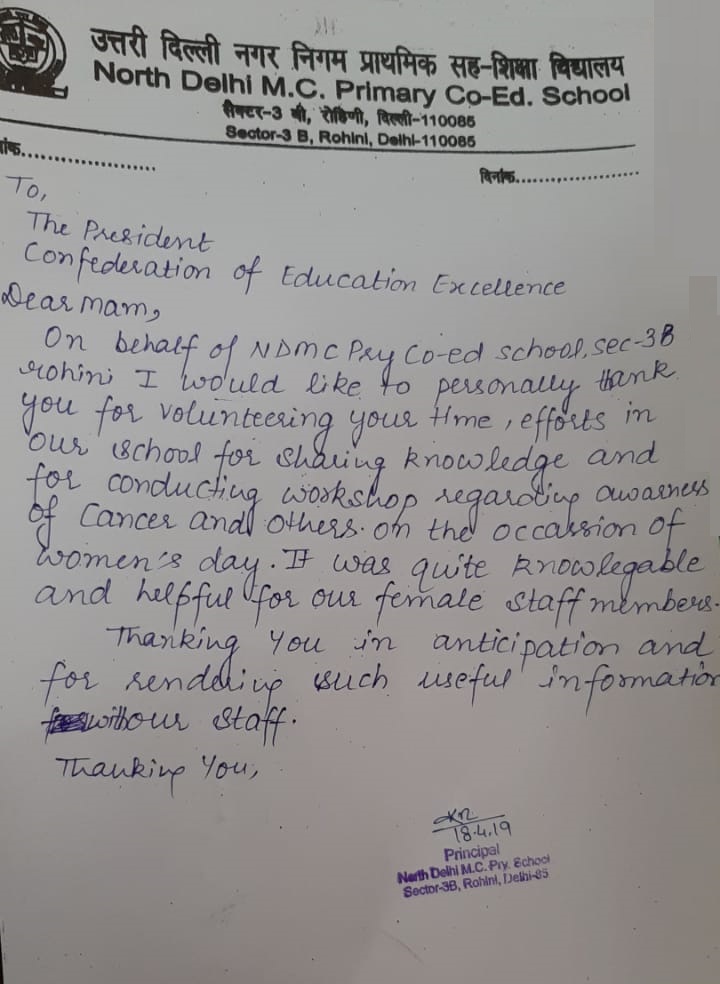 उत्तरी दिल्ली नगर निगम प्राथमिक सह-शिक्षा विद्यालय
North Delhi M.C. Primary Co-Ed. School
सैक्टर-3 बी, रोहिणी, दिल्ली-110085
Sector-3 B, Rohini, Delhi-110085
ांक.....................
दिनांक...................
To,
The President
Confederation of Education Excellence
Dear mam,
On behalf of NDMC Pry Co-ed school, sec-3B
rohini I would like to personally thank
you for volunteering your time, efforts in
our school for sharing knowledge and
for conducting workshop regarding awarness
of Cancer and others. on the occassion of
women's day. It was quite knowlegable
and helpful for our female staff members.
Thanking you in anticipation and
for rendering such useful information
with our staff.
Thanking You,
18.4.19
Principal
North Delhi M.C. Pry. School
Sector-3B, Rohini, Delhi-85